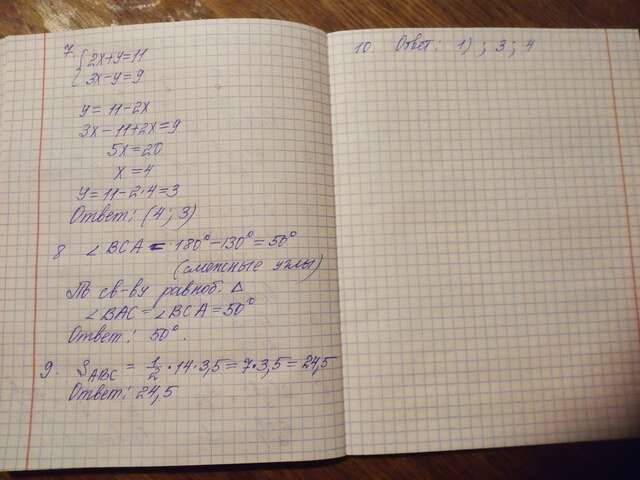 7. { 2x+y=11
3x-y=9
y = 11-2x
3x-11+2x=9
5x=20
x=4
y=11-2·4=3
Ответ: (4; 3)
8 ∠BCA = 180°-130°=50°
(смежные углы)
По св-ву равноб. Δ
∠BAC=∠BCA=50°
Ответ: 50°.
9. S ABC = 1/2·14·3,5=7·3,5=24,5
Ответ: 24,5
10 Ответ: 1) ; 3 ; 4